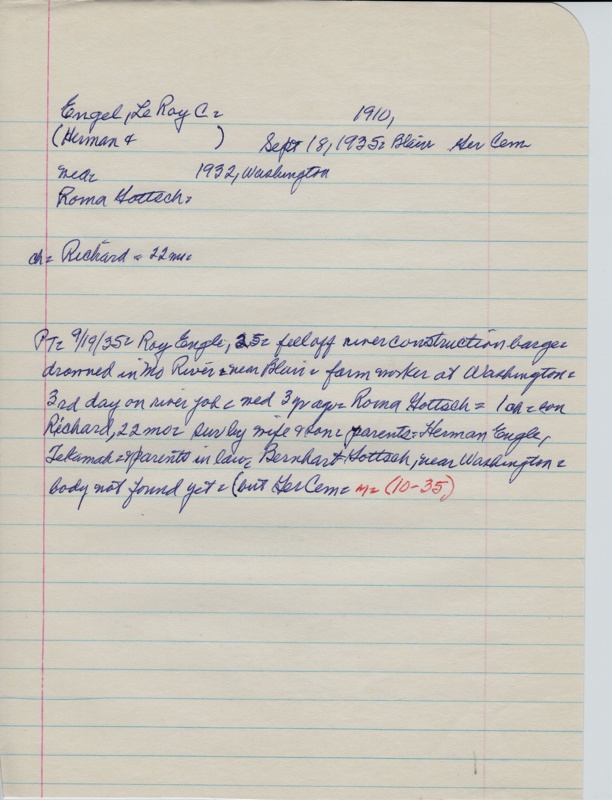 Engel, Le Roy C = 1910,
(Herman & ) Sept 18, 1935 = Blair Ger Cem
near 1932, Washington
Roma Gottsch =
ch = Richard = 22 mo =
PT = 9/19/35 = Roy Engle, 25 = fell off river construction barge =
drowned in Mo River = near Blair = farm worker at Washington =
3rd day on river job = wed 3 yr ago = Roma Gottsch = 1 ch = son
Richard, 22 mo = sur by wife & son = parents = Herman Engle,
Tekamah = & parents in law = Bernhart Gottsch, near Washington =
body not found yet = (but Ger Cem = m = (10-35)